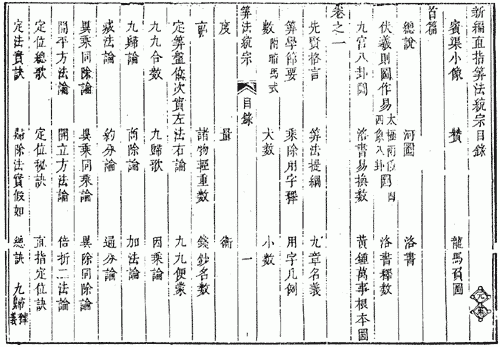 新編直指算法統宗目錄
賓渠小像 贊 龍馬負圖
首篇
總說 河圖 洛書
伏羲則圖作易 洛書釋數
九宮八卦圖 洛書易換數 黃鍾萬事根本圖
卷之一
先賢格言 算法提綱 九章名義
算學節要 乘除用字釋 用字凡例
數 附暗馬式 大數 小數
算法統宗 目錄 一
度 量 衡
畝 諸物輕重數 錢鈔名數
定算盤位次實左法右論 九九便蒙
九九合數 九歸歌 因乘論
九歸論 商除論 加法論
減法論 約分論 通分論
異乘同除論 異乘同乘論 異除同除論
開平方法論 開立方法論 倍折二法論
定位總歌 定位秘訣 直指定位訣
定法實訣 歸除法實假如 總訣 九歸釋義